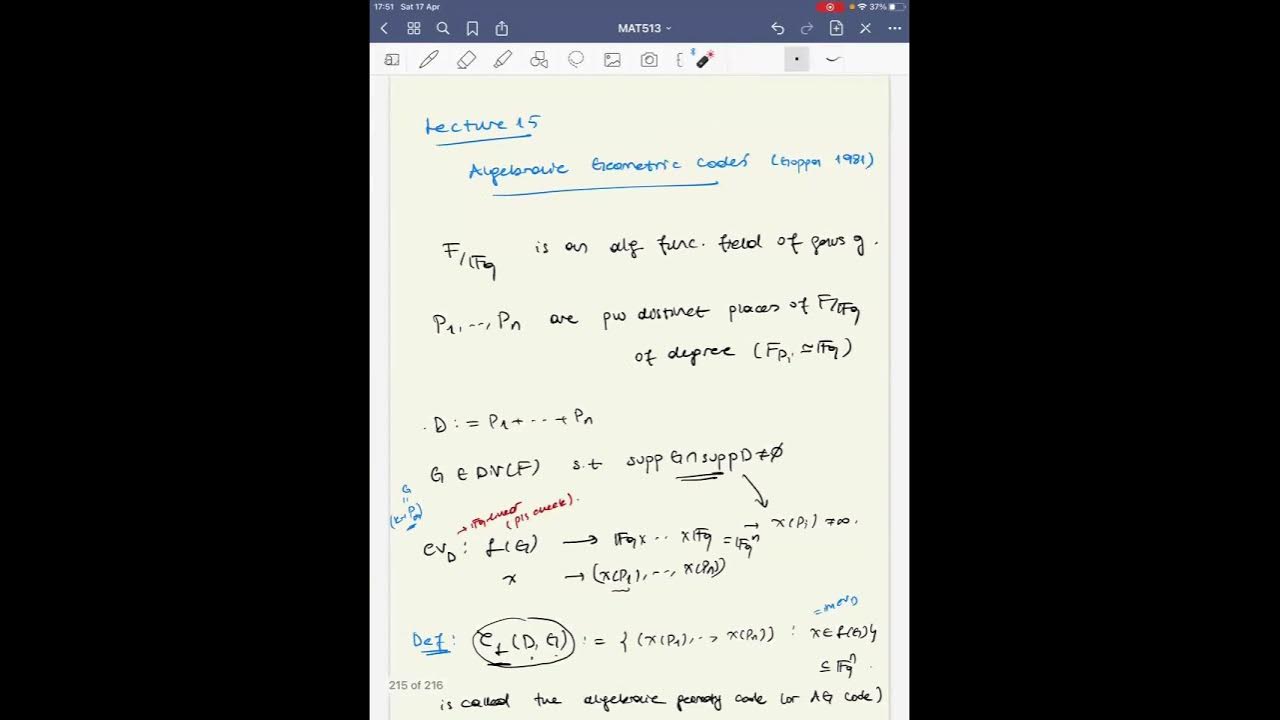 17:51 Sat 17 Apr
37%
MAT513
Lecture 15
Algebraic Geometric Codes (Goppa 1981)
F/𝔽q is an alg func. field of genus g.
P₁, ..., Pₙ are pw distinct places of F/𝔽q
of degree (F_Pᵢ ≃ 𝔽q)
D := P₁ + ... + Pₙ
G ∈ Div(F) s.t supp G ∩ supp D ≠ ∅
G
=
→ 𝔽q-linear (pls check).
ev_D : ℒ(G) → 𝔽q x ... x 𝔽q = 𝔽qⁿ → x(Pᵢ) ≠ ∞.
x → (x(P₁), ..., x(Pₙ))
= im ev_D
Def: C_ℒ(D, G) := { (x(P₁), ..., x(Pₙ)) : x ∈ ℒ(G) }
⊆ 𝔽qⁿ.
215 of 216
is called the algebraic geometry code (or AG code)